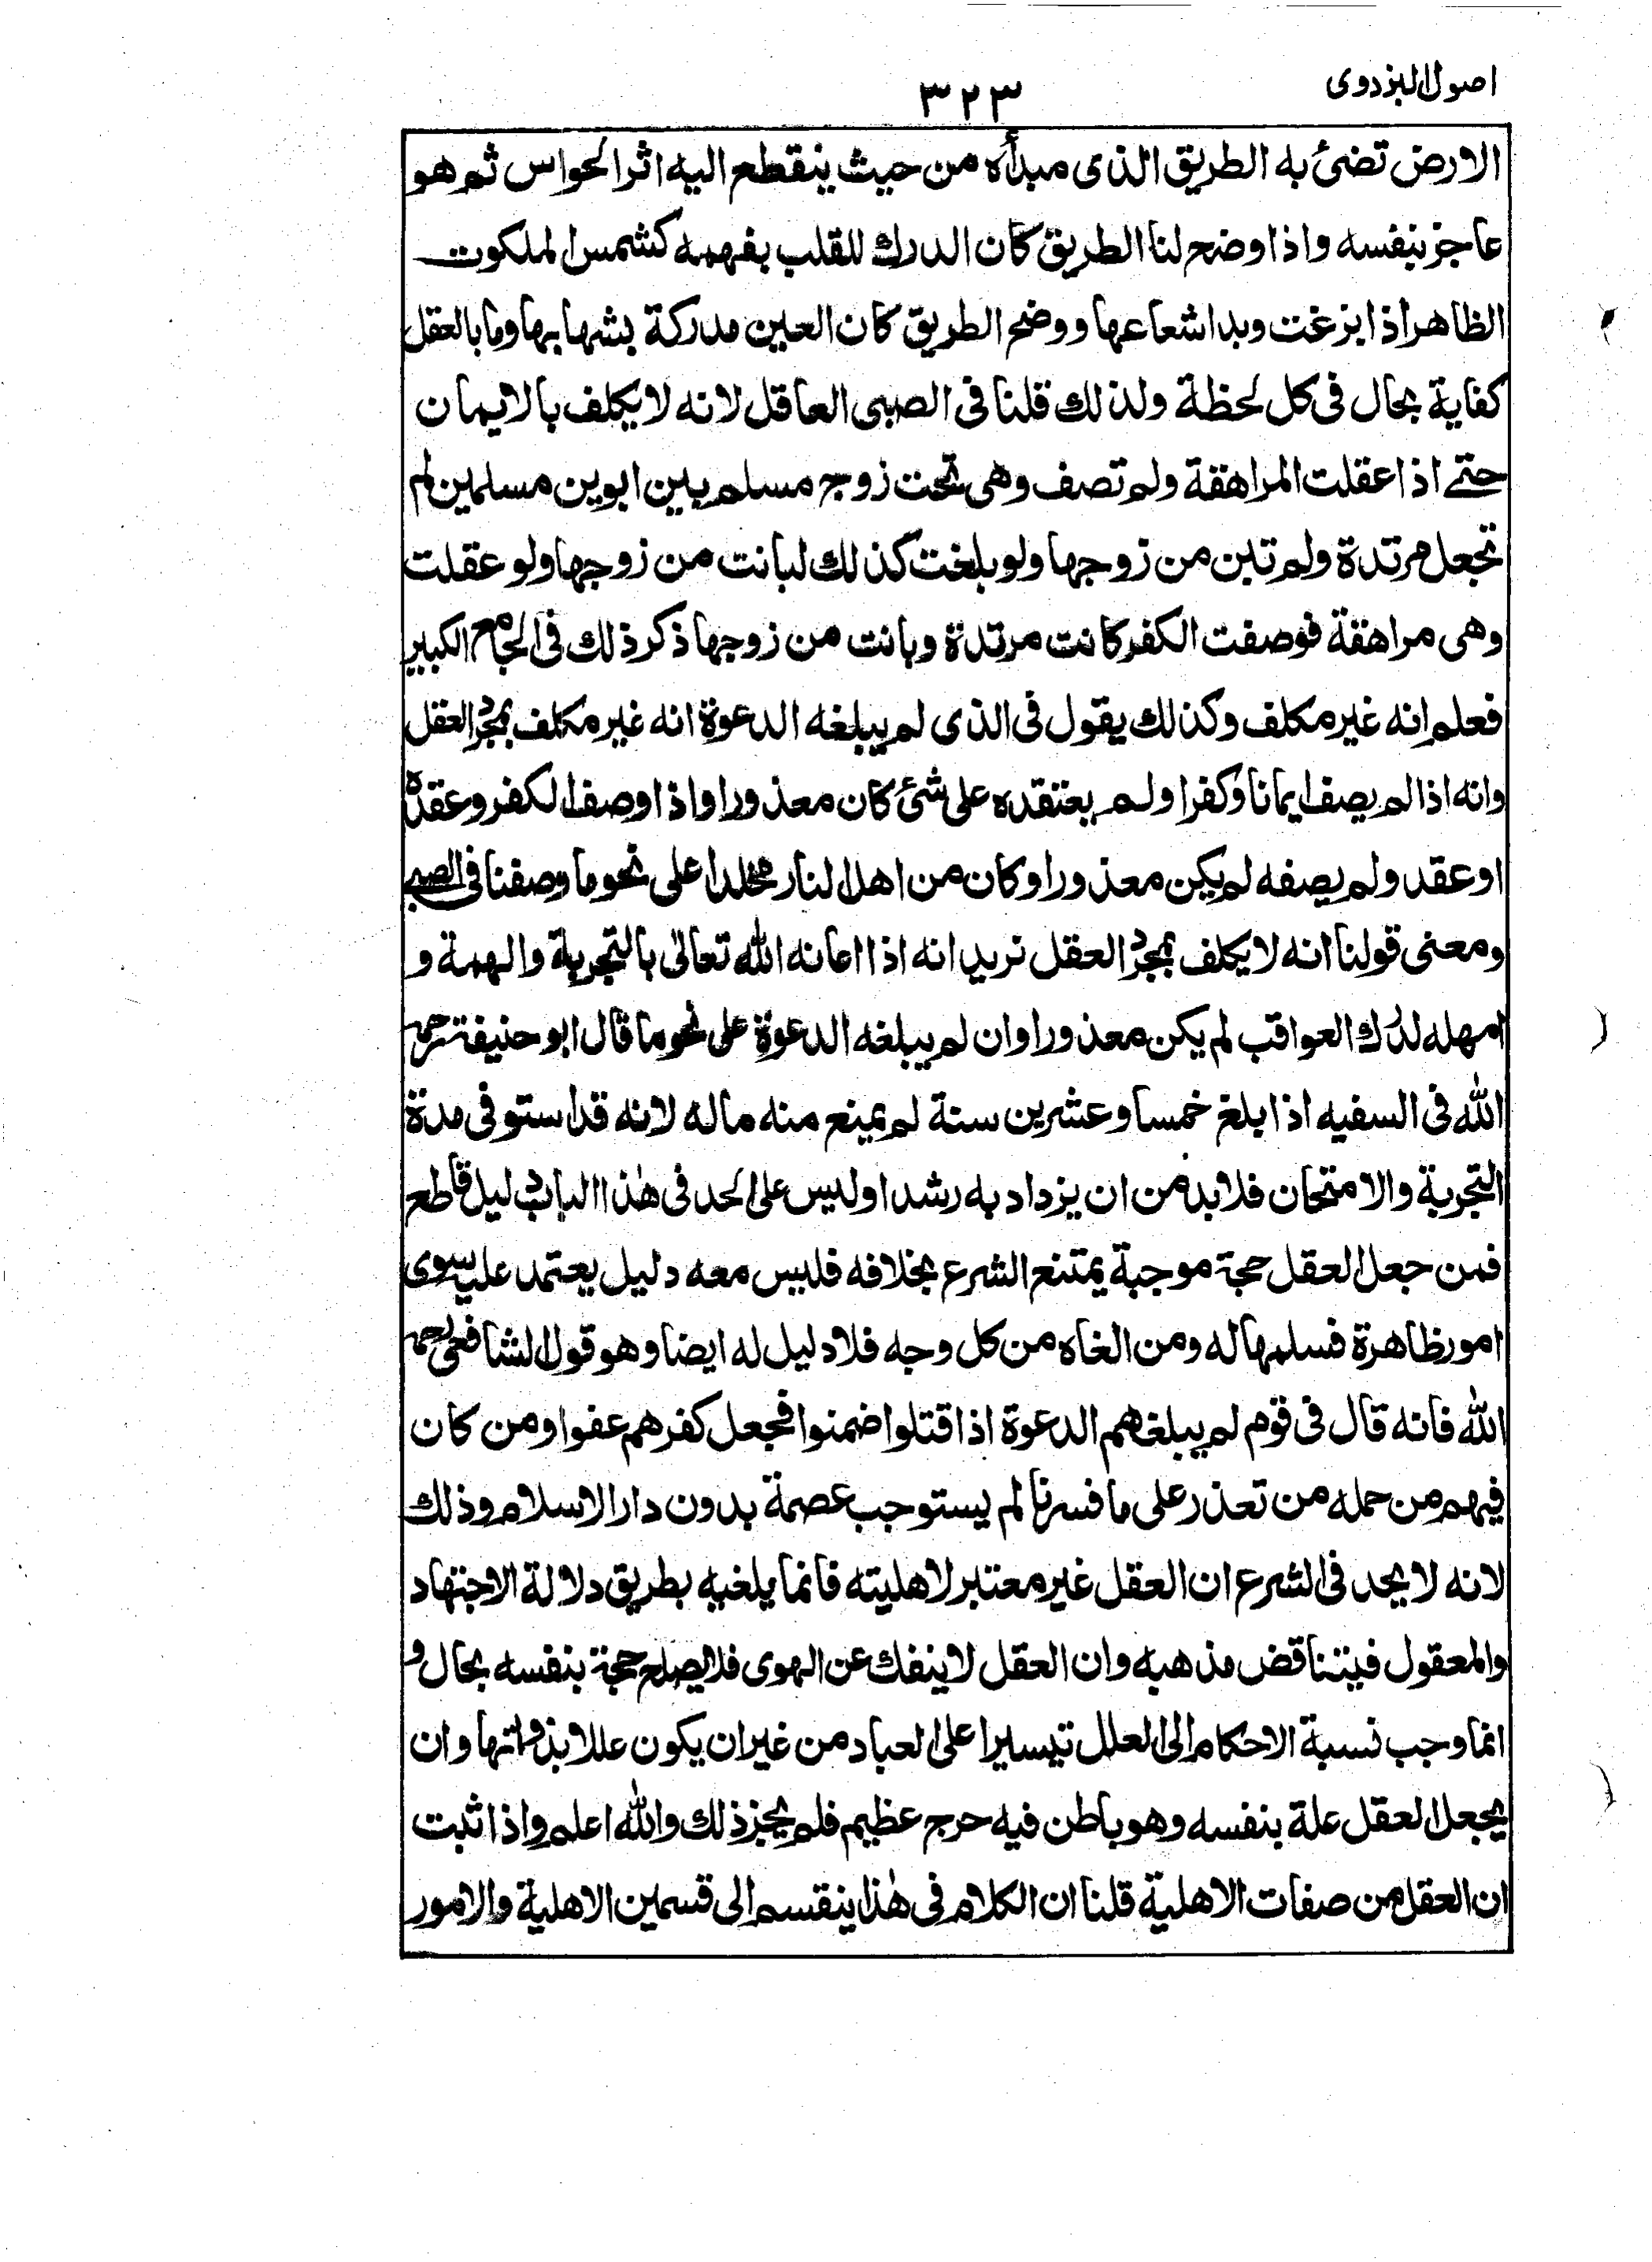 اصول البزدوی
٣٢٣
الارض تضئ به الطريق الذى مبدأه من حيث ينقطع اليه اثر الحواس ثم هو
عاجز بنفسه واذا وضح لنا الطريق كان الدرك للقلب بفهمه كشمس الملكوت
الظاهر اذا بزغت وبدا شعاعها ووضح الطريق كان العين مدركة بشهابها وما بالعقل
كفاية بحال فى كل لحظة ولذلك قلنا فى الصبى العاقل لانه لا يكلف بالايمان
حتے اذا عقلت المراهقة ولم تصف وهى تحت زوج مسلم بين ابوين مسلمين لم
تجعل مرتدة ولم تبن من زوجها ولو بلغت كذلك لبانت من زوجها ولو عقلت
وهى مراهقة فوصفت الكفر كانت مرتدة وبانت من زوجها ذكر ذلك فى الجامع الكبير
فعلم انه غير مكلف وكذلك يقول فى الذى لم يبلغه الدعوة انه غير مكلف بمجرد العقل
وانه اذا لم يصف ايمانا وكفرا ولم يعتقده على شئ كان معذورا واذا وصف الكفر وعقده
او عقد ولم يصفه لم يكن معذورا وكان من اهل النار مخلدا على نحو ما وصفنا فى الصبے
ومعنى قولنا انه لا يكلف بمجرد العقل نريد انه اذا اعانه الله تعالى بالتجربة والهمة و
امهله لدرك العواقب لم يكن معذورا وان لم يبلغه الدعوة على نحو ما قال ابو حنيفة رحمه
الله فى السفيه اذا بلغ خمسا وعشرين سنة لم يمنع منه ماله لانه قد استوفى مدة
التجربة والامتحان فلا بد من ان يزداد به رشدا وليس على الحد فى هذا الباب دليل قاطع
فمن جعل العقل حجة موجبة يمتنع الشرع بخلافه فليس معه دليل يعتمد عليه سوى
امور ظاهرة فسلمها له ومن الغاه من كل وجه فلا دليل له ايضا وهو قول الشافعى رحمه
الله فانه قال فى قوم لم يبلغهم الدعوة اذا قتلوا ضمنوا فجعل كفرهم عفوا ومن كان
فيهم من حمله من تعذر على ما فسرنا لم يستوجب عصمة بدون دار الاسلام وذلك
لانه لا يجد فى الشرع ان العقل غير معتبر لاهليته فانما يلغيه بطريق دلالة الاجتهاد
والمعقول فيتناقض مذهبه وان العقل لا ينفك عن الهوى فلا يصلح حجة بنفسه بحال و
انما وجب نسبة الاحكام الى العلل تيسيرا على العباد من غير ان يكون عللا بذواتها وان
يجعل العقل علة بنفسه وهو باطن فيه حرج عظيم فلم يجز ذلك والله اعلم واذا ثبت
ان العقل من صفات الاهلية قلنا ان الكلام فى هذا ينقسم الى قسمين الاهلية والامور